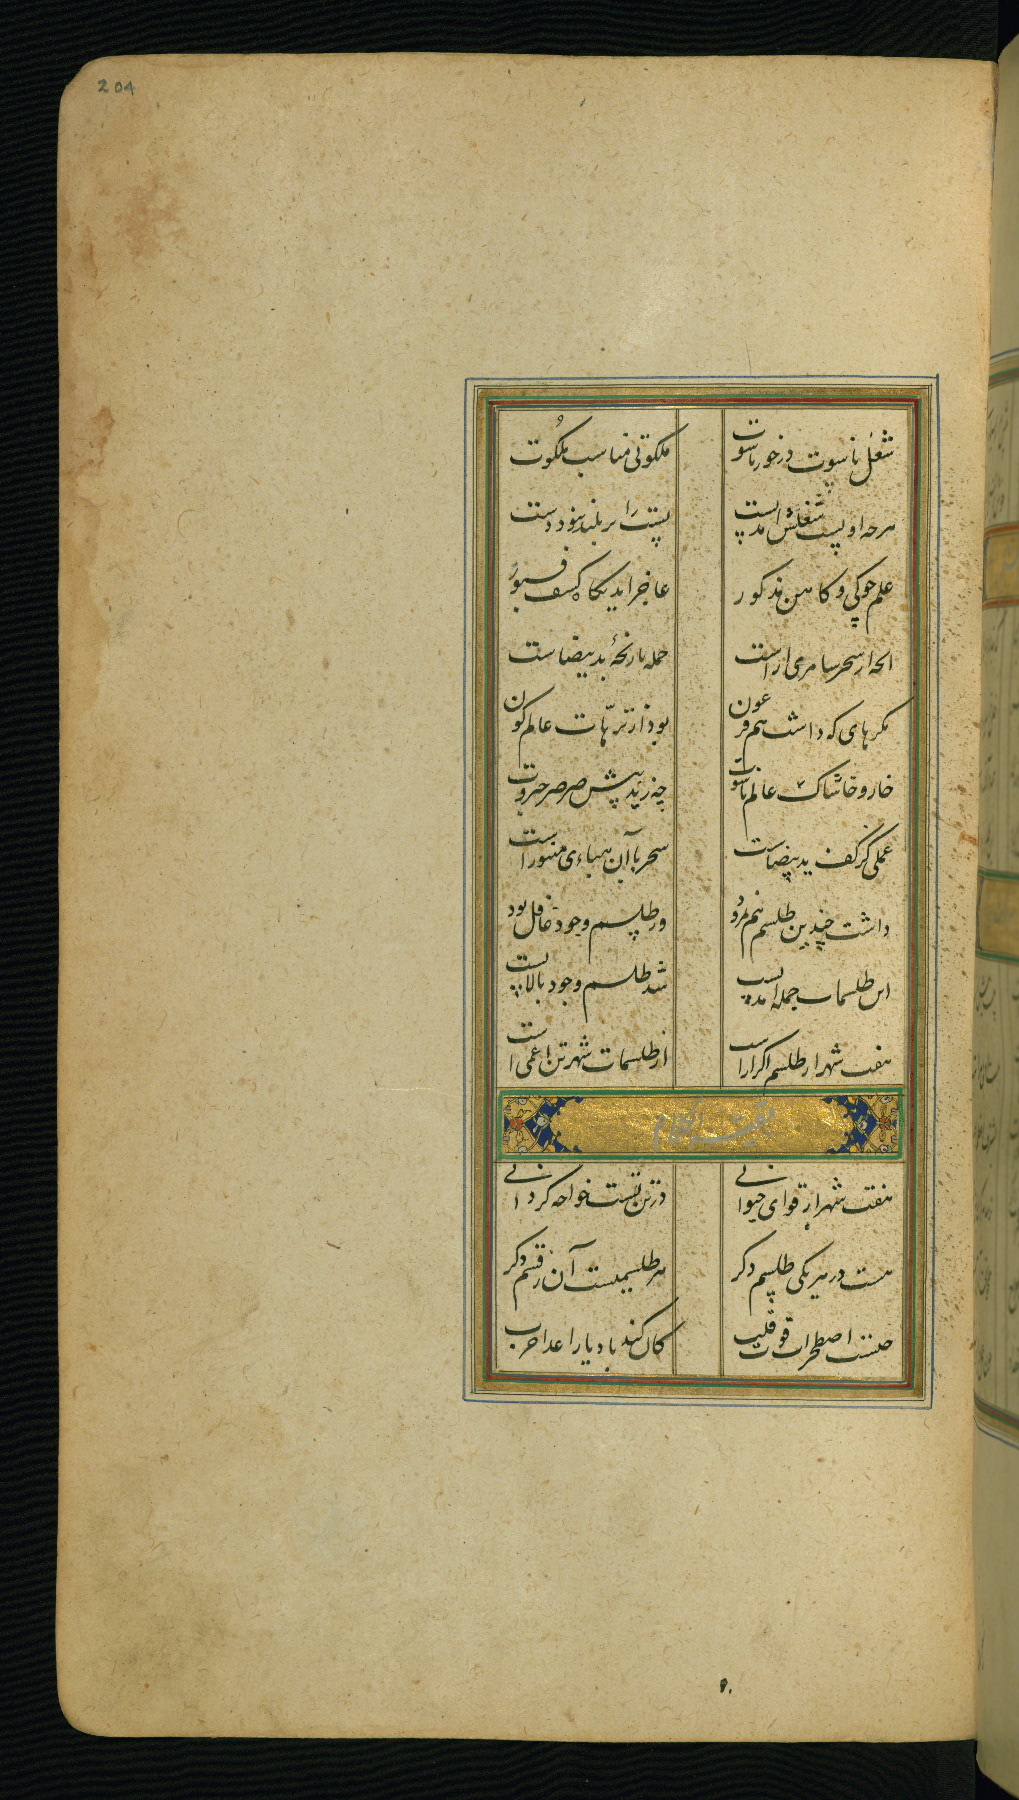 204
شغل ناسوت درخور ناسوت ملکوتی مناسب ملکوت
هرچه او پست شغلش آمد پست پست را بر بلند نبود دست
علم جوکی و کاهن مذکور عاجز آید بگاه کشف قبور
آنچه از سحر سامری آراست جمله بازیچهٔ ید بیضاست
مکرهای که داشت هم فرعون بود از ترهات عالم کون
خار و خاشاک عالم ناسوت چه زید پیش صرصر جبروت
عملی کز کف ید بیضاست سحر با آن هباءی منثوراست
داشت چندین طلسم هم نمرود ور طلسم وجود غافل بود
این طلسمات جمله آمد پست شد طلسم وجود بالا پست
هفت شهر از طلسم اکر آراست از طلسمات شهر تن اعمی است
هفت شهر از قوای حیوانی در تن تست خواجه کر دانی
هست در هر یکی طلسم دکر هر طلسمیست آن ز قسم دکر
قوت قلب کان کند با دیار اعدا حرب